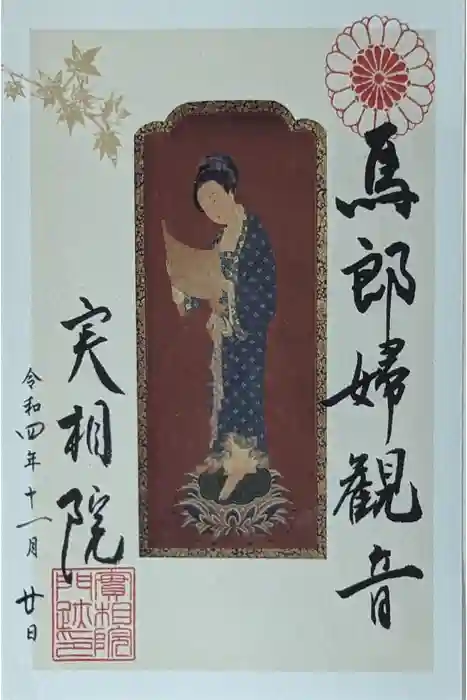 馬郎婦観音
実相院
令和四年十一月廿日
實相院
門跡印